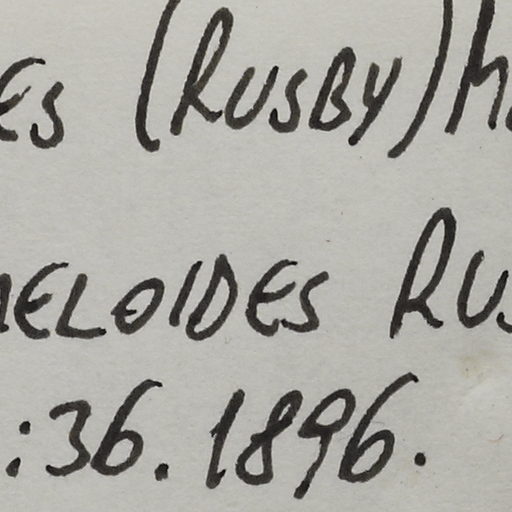 ES (RUSBY) M
MELOIDES RUS
:36.1896.